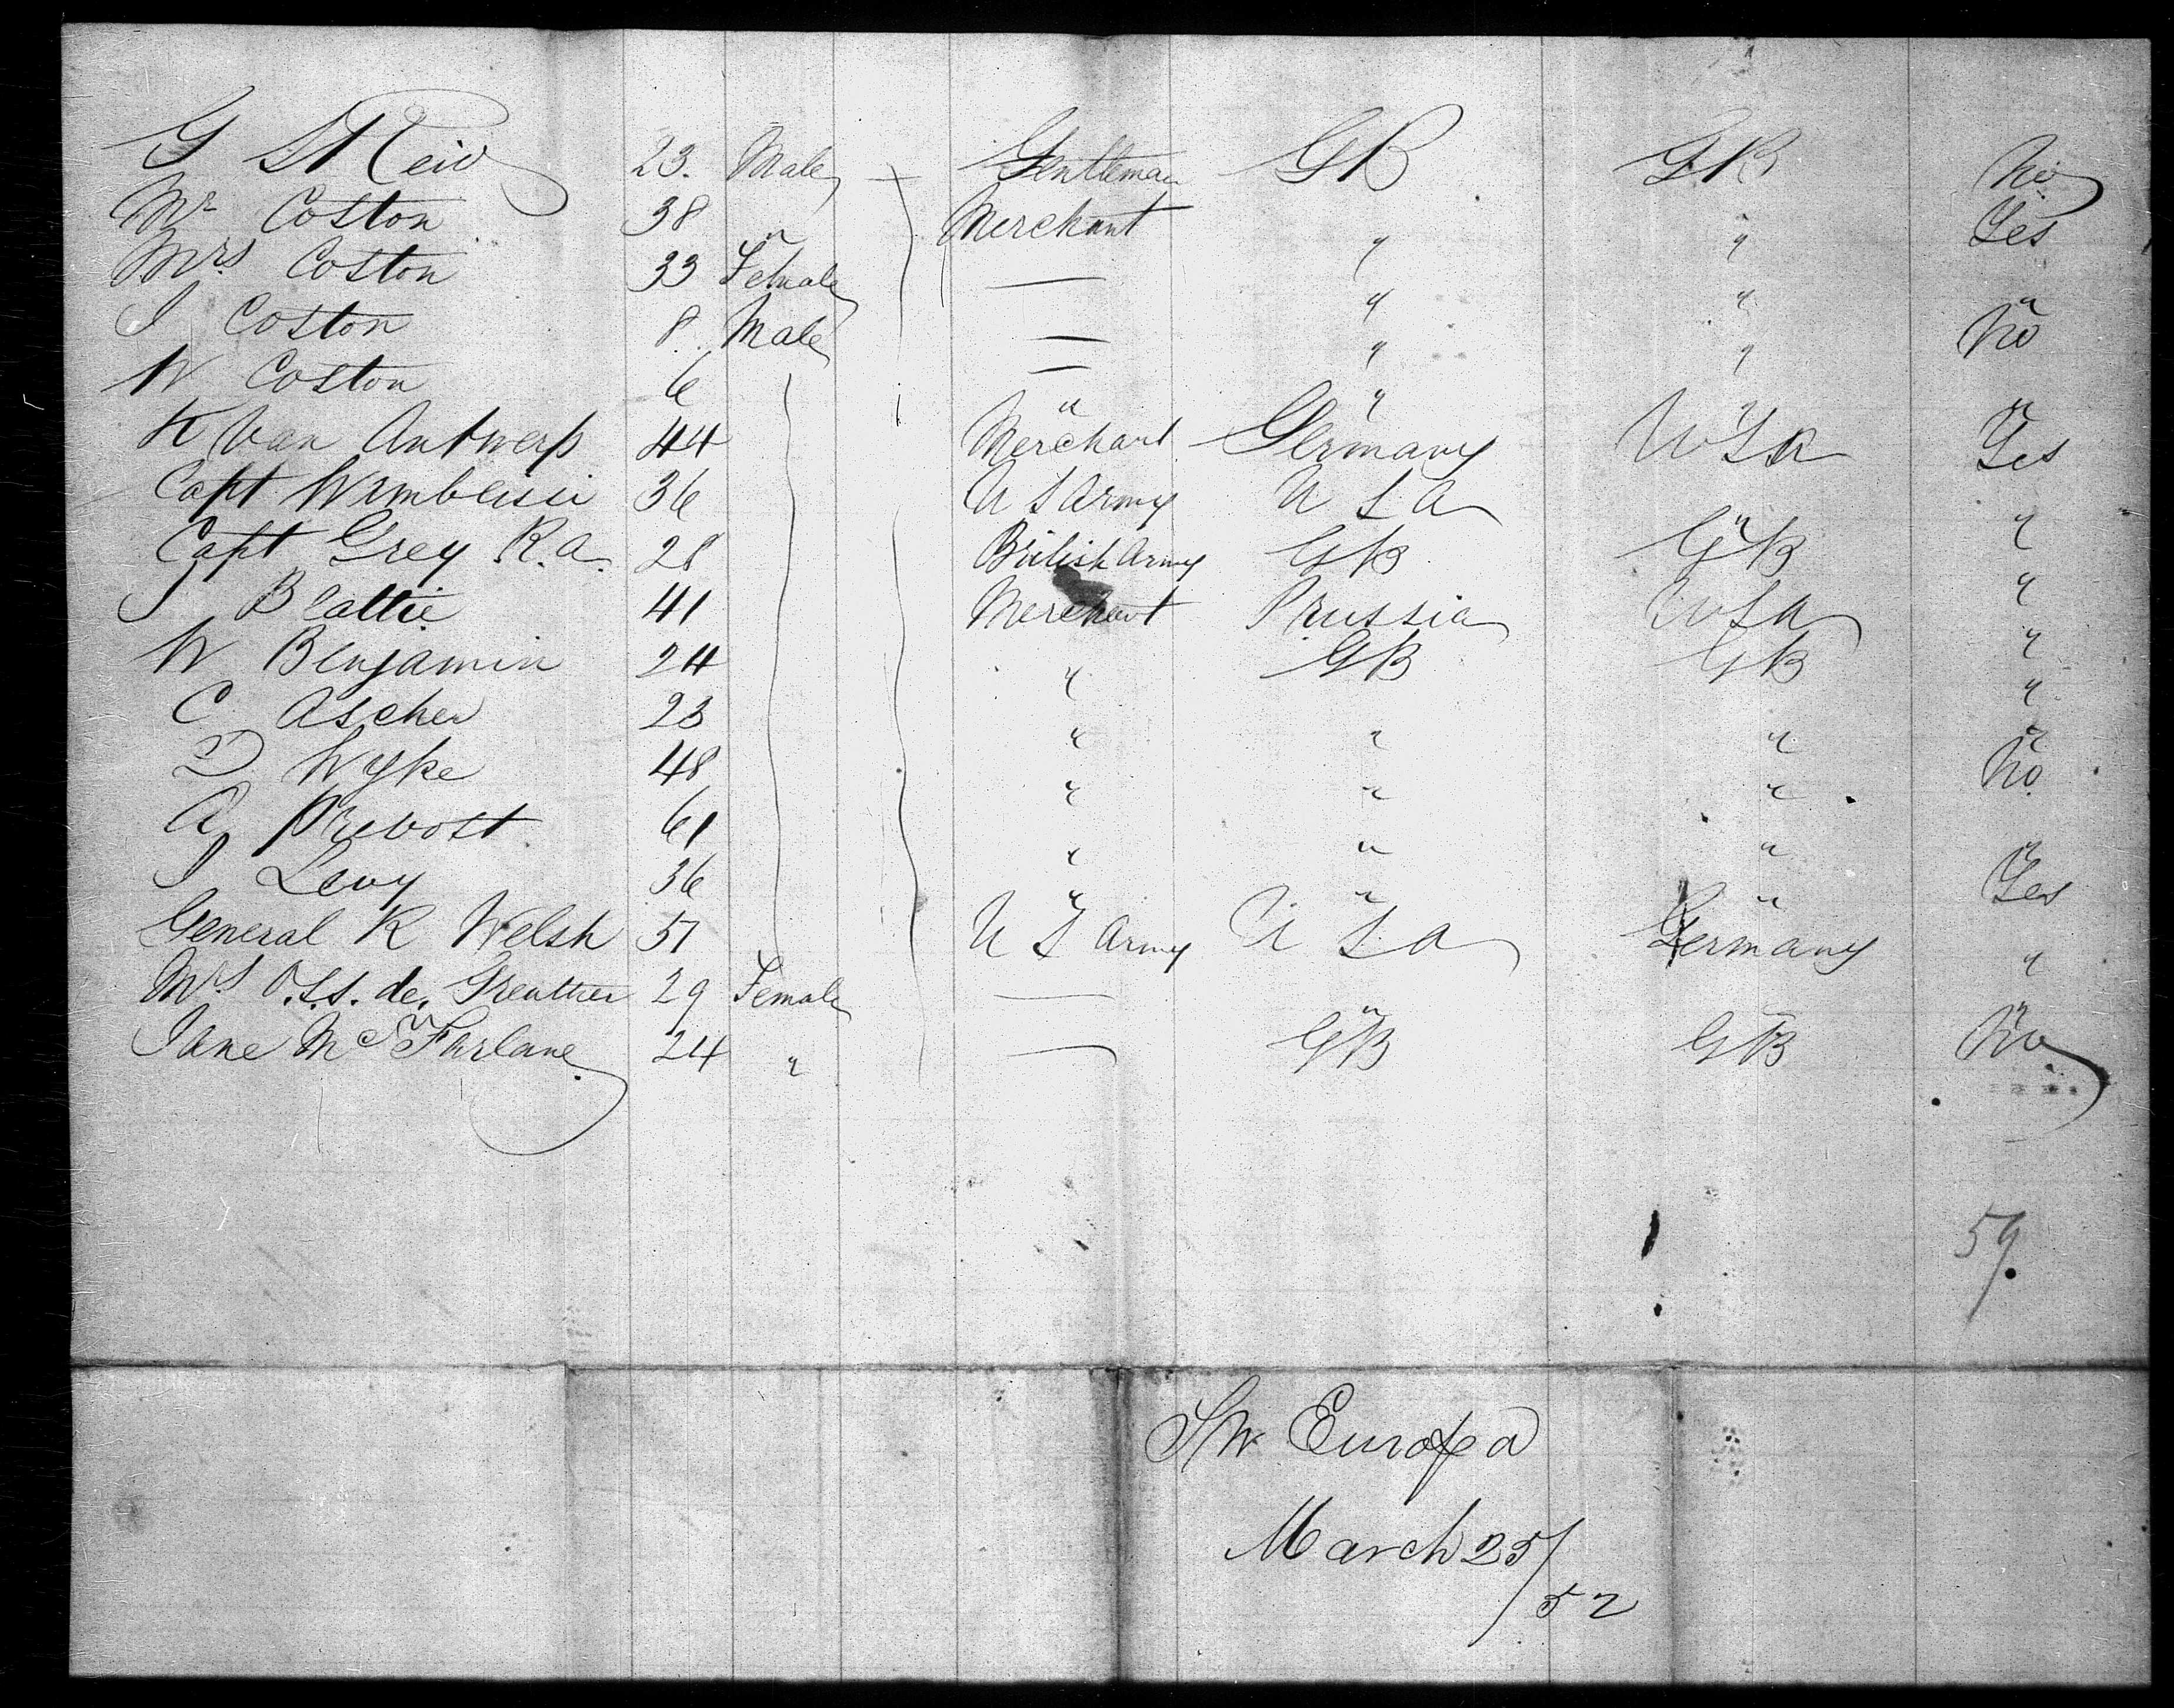 G S Reid 23. Male — Gentleman GB GB No
Mr Coston 38 " Merchant " " Yes
Mrs Coston 33 Female — " " "
J Coston 8. Male — " " No
W Coston 6 — " " "
K Van Antwerp 44 Merchant Germany USA Yes
Capt 36 U S Army U S A " "
Capt Grey R.A. 28 British Army GB GB "
J Beattie 41 Merchant Prussia USA "
W Benjamin 24 " GB GB "
C Ascher 23 " " " "
D Wyke 48 " " " No
A Prevost 61 " " " "
J Levy 36 " " " Yes
General K Welsh 51 U S Army U S A Germany "
Mrs O.S.S. de. 29 Female — " "
Jane McFarlane 24 " — GB GB No
59.
Europa
March 25/
52